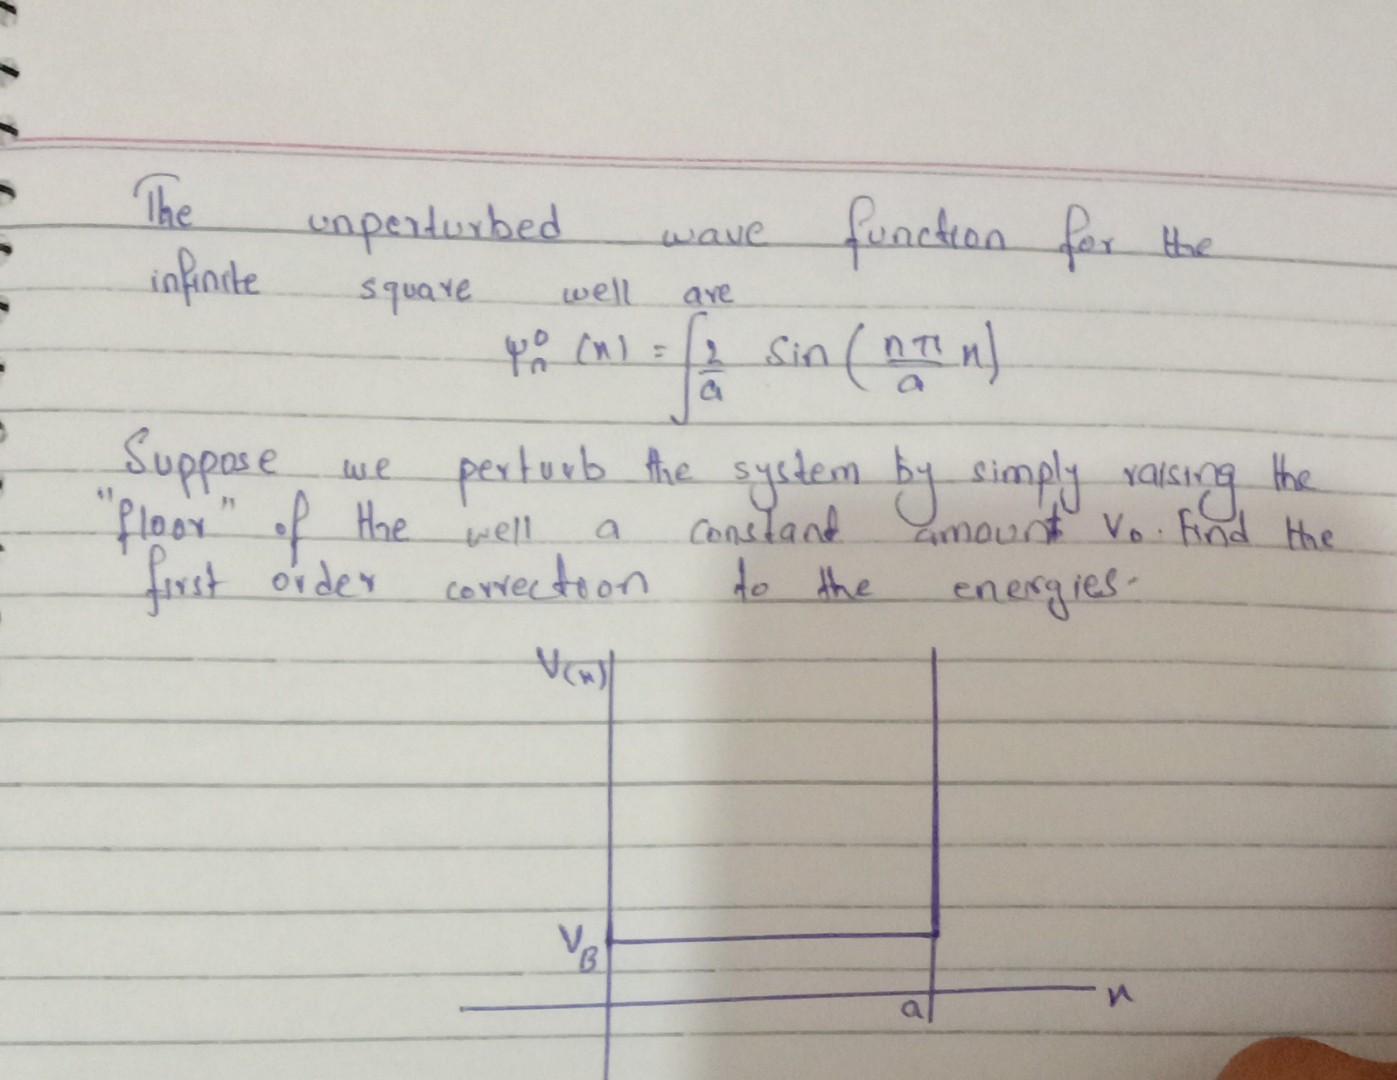 The unperturbed wave function for the
infinite square well are
ψₙ⁰ (x) = √(2/a) sin (nπ/a x)
Suppose we perturb the system by simply raising the
"floor" of the well a constant amount V₀. Find the
first order correction to the energies.
V(x)
V_B
a
x